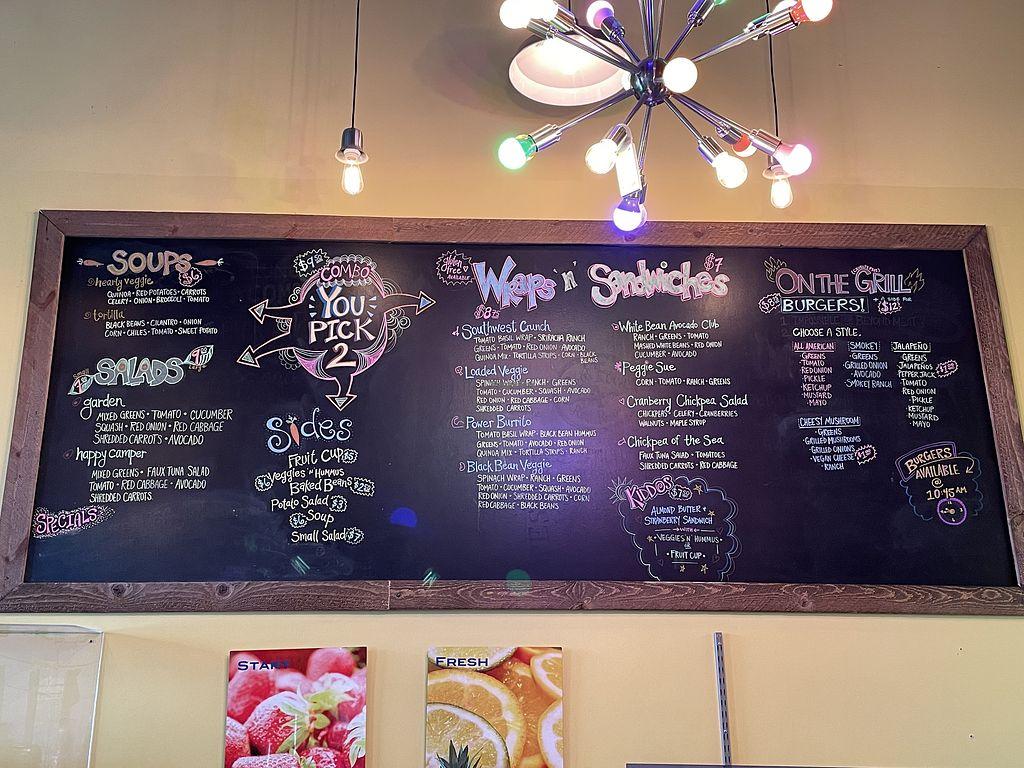 SOUPS $6
hearty veggie
QUINOA • RED POTATOES • CARROTS
CELERY • ONION • BROCCOLI • TOMATO
tortilla
BLACK BEANS • CILANTRO • ONION
CORN • CHILES • TOMATO • SWEET POTATO
SALADS
garden
MIXED GREENS • TOMATO • CUCUMBER
SQUASH • RED ONION • RED CABBAGE
SHREDDED CARROTS • AVOCADO
happy camper
MIXED GREENS • FAUX TUNA SALAD
TOMATO • RED CABBAGE • AVOCADO
SHREDDED CARROTS
SPECIALS
COMBO
YOU
PICK
2
Sides
FRUIT CUP
VEGGIES 'N' HUMMUS
BAKED BEANS
POTATO SALAD $3
$6 SOUP
SMALL SALAD $7
GLUTEN
FREE
AVAILABLE
Wraps 'n' Sandwiches $7
Southwest Crunch
TOMATO BASIL WRAP • SRIRACHA RANCH
GREENS • TOMATO • RED ONION • AVOCADO
QUINOA MIX • TORTILLA STRIPS • CORN • BLACK
BEANS
Loaded Veggie
SPINACH WRAP • RANCH • GREENS
TOMATO • CUCUMBER • SQUASH • AVOCADO
RED ONION • RED CABBAGE • CORN
SHREDDED CARROTS
Power Burrito
TOMATO BASIL WRAP • BLACK BEAN HUMMUS
GREENS • TOMATO • AVOCADO • RED ONION
QUINOA MIX • TORTILLA STRIPS • RANCH
Black Bean Veggie
SPINACH WRAP • RANCH • GREENS
TOMATO • CUCUMBER • SQUASH • AVOCADO
RED ONION • SHREDDED CARROTS • CORN
RED CABBAGE • BLACK BEANS
White Bean Avocado Club
RANCH • GREENS • TOMATO
MASHED WHITE BEANS • RED ONION
CUCUMBER • AVOCADO
Peggie Sue
CORN • TOMATO • RANCH • GREENS
Cranberry Chickpea Salad
CHICKPEAS • CELERY • CRANBERRIES
WALNUTS • MAPLE SYRUP
Chickpea of the Sea
FAUX TUNA SALAD • TOMATOES
SHREDDED CARROTS • RED CABBAGE
KIDDOS
ALMOND BUTTER &
STRAWBERRY SANDWICH
WITH
VEGGIES 'N' HUMMUS
FRUIT CUP
ON THE GRILL
BURGERS!
SIDE FOR
CHOOSE A STYLE.
ALL AMERICAN
GREENS
TOMATO
RED ONION
PICKLE
KETCHUP
MUSTARD
MAYO
SMOKEY
GREENS
GRILLED ONION
AVOCADO
SMOKEY RANCH
JALAPEÑO
GREENS
JALAPEÑOS
PEPPER JACK
TOMATO
RED ONION
PICKLE
KETCHUP
MUSTARD
MAYO
CHEESY MUSHROOM
GREENS
GRILLED MUSHROOMS
GRILLED ONIONS
VEGAN CHEESE
RANCH
BURGERS
AVAILABLE
@
10:45 AM
START
FRESH